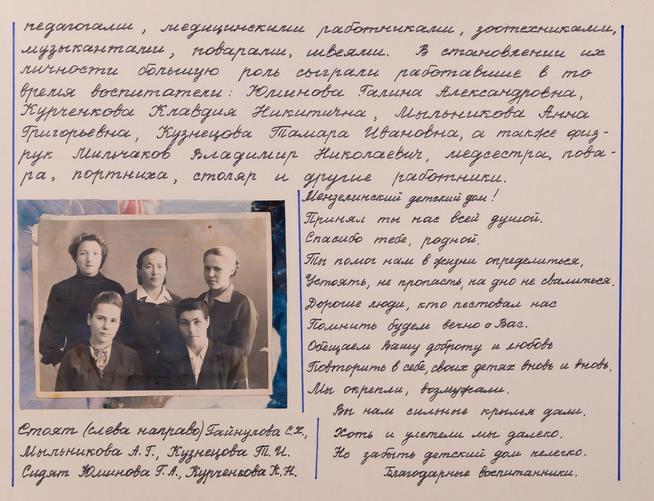 педагогами, медицинскими работниками, зоотехниками,
музыкантами, поварами, швеями. В становлении их
личности большую роль сыграли работавшие в то
время воспитатели: Юминова Галина Александровна,
Курченкова Клавдия Никитична, Мыльникова Анна
Григорьевна, Кузнецова Тамара Ивановна, а также физ-
рук Мильчаков Владимир Николаевич, медсестра, пова-
ра, портниха, столяр и другие работники.
Менделинский детский дом!
Принял ты нас всей душой.
Спасибо тебе, родной.
Ты помог нам в жизни определиться,
Устоять, не пропасть, на дно не свалиться.
Дорогие люди, кто пестовал нас
Помнить будем вечно о Вас.
Обещаем Вашу доброту и любовь
Повторить в себе, своих детях вновь и вновь.
Мы окрепли, возмужали.
Вы нам сильные крылья дали.
Хоть и улетели мы далеко.
Но забыть детский дом нелегко.
Благодарные воспитанники.
Стоят (слева направо) Гайнулова С.Х.,
Мыльникова А.Г., Кузнецова Т.И.
Сидят Юминова Г.А., Курченкова К.Н.